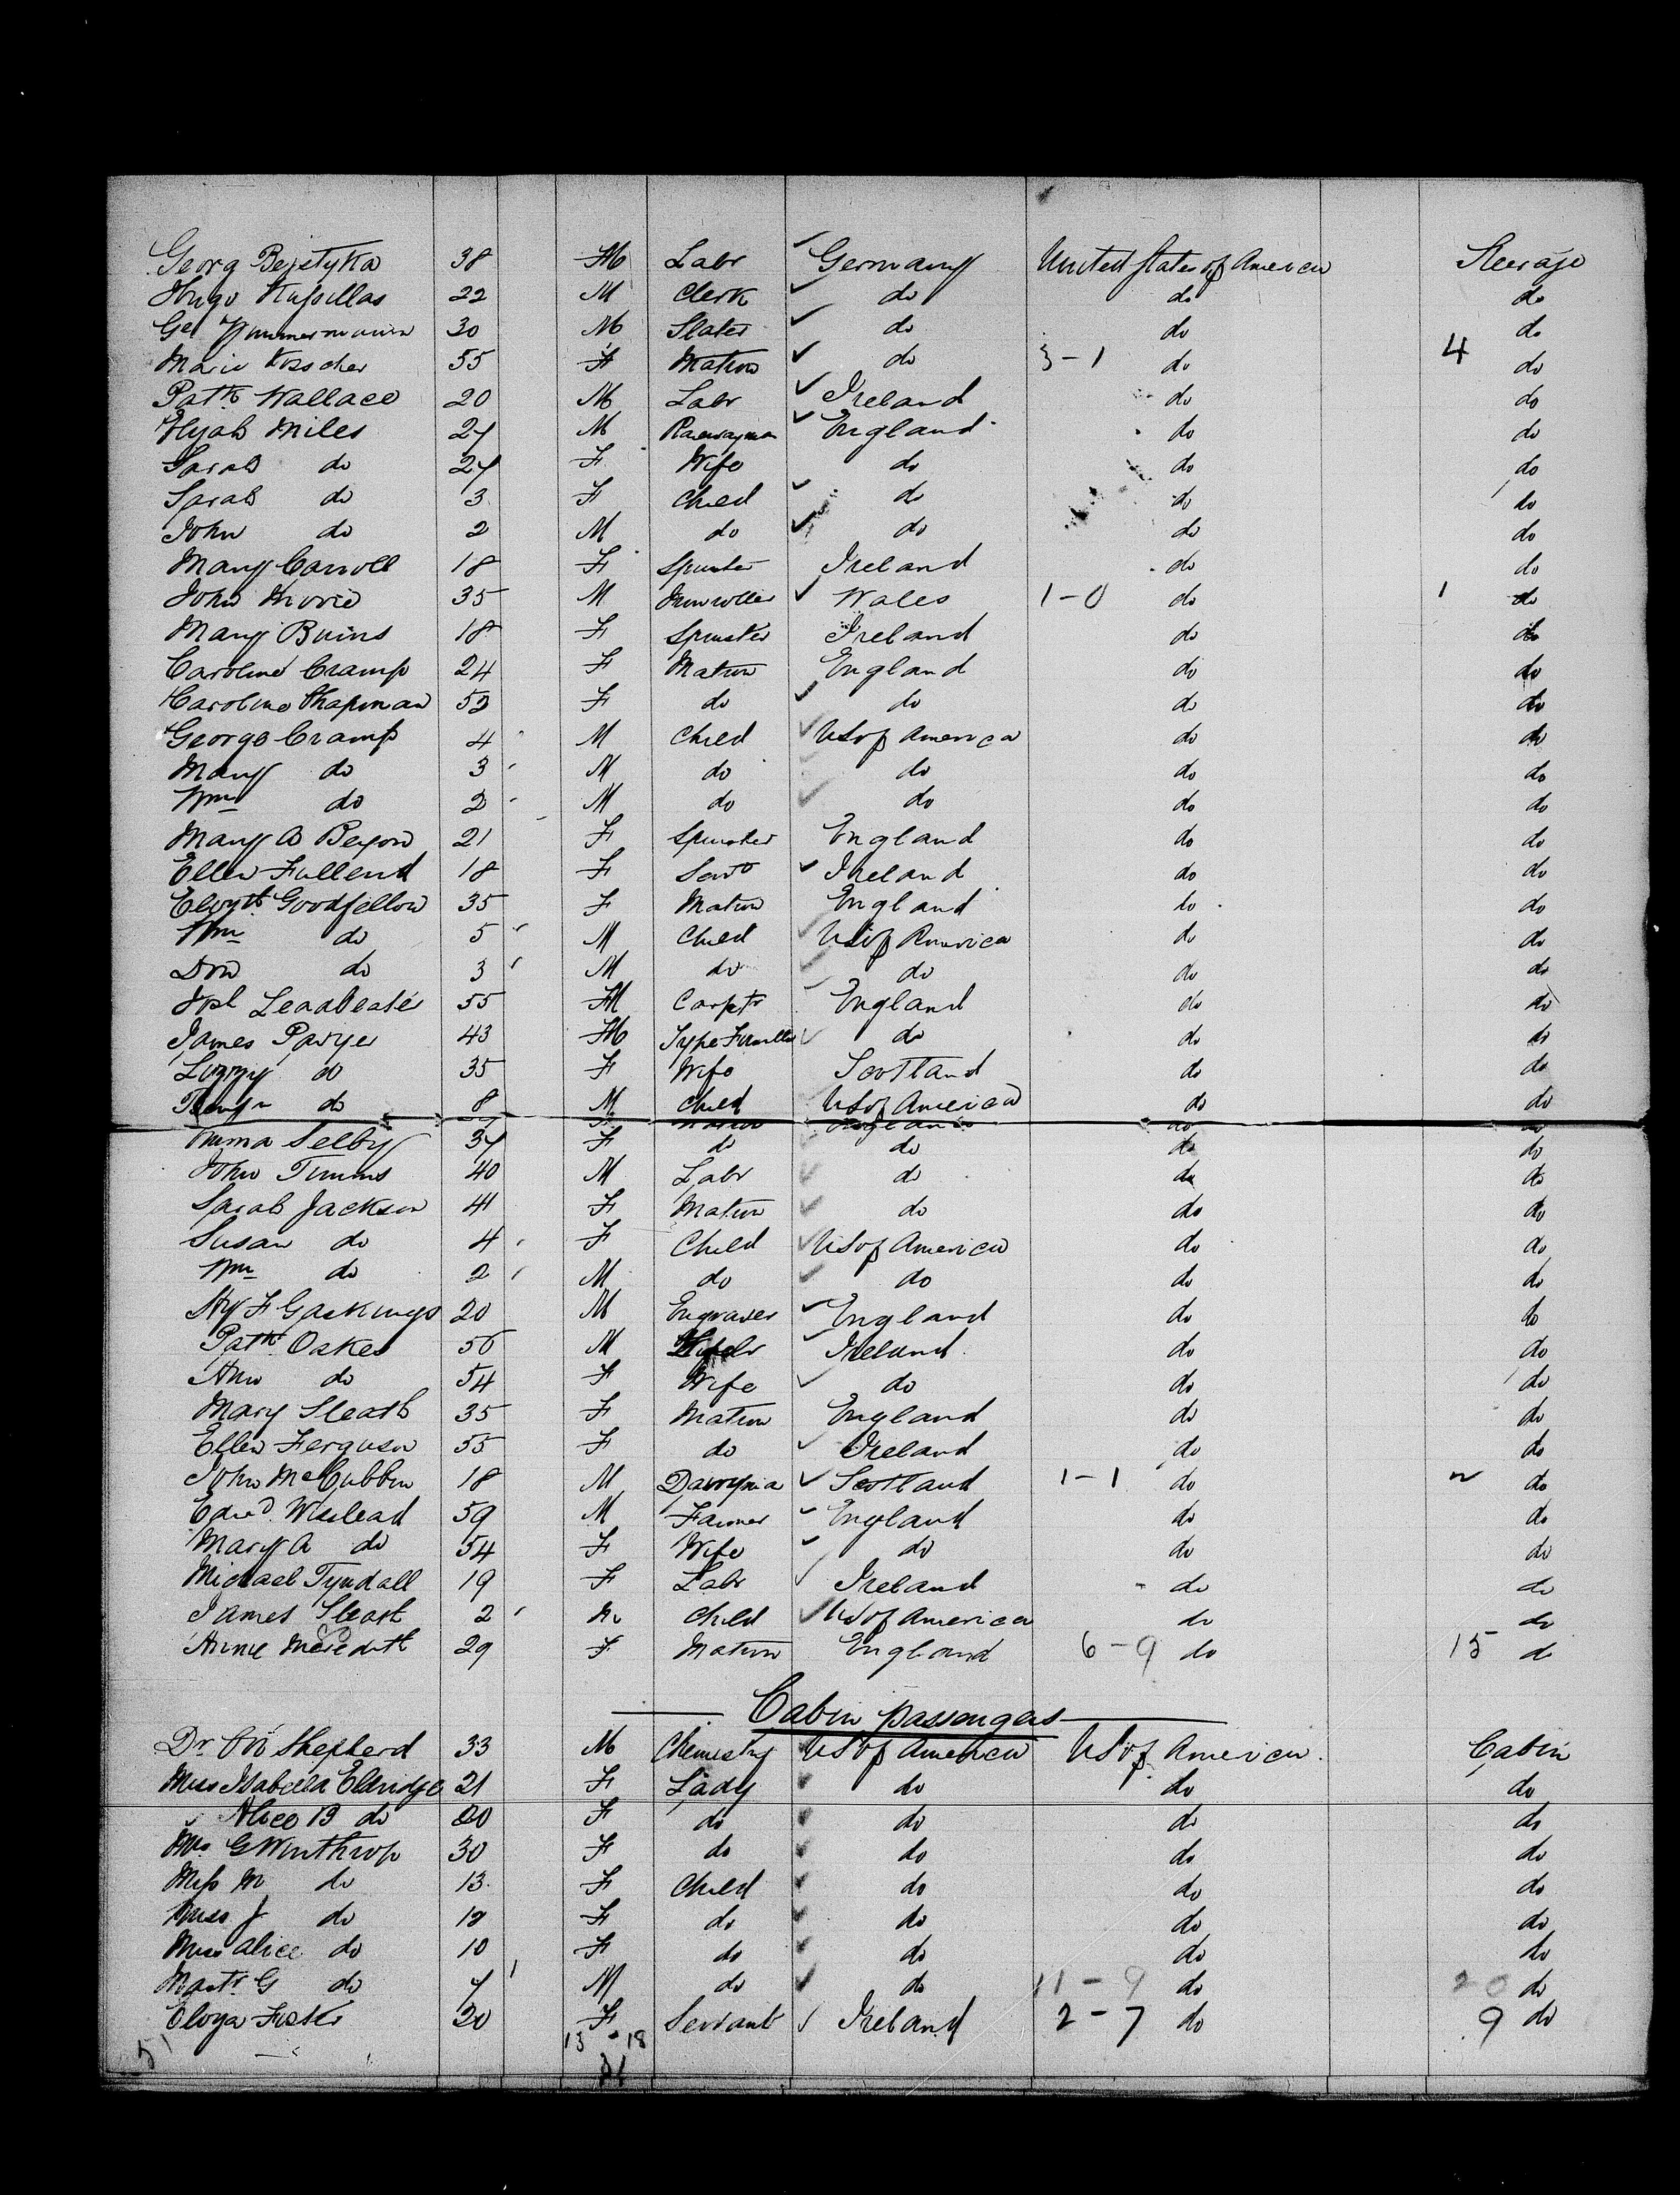 Georg 38 M Labr Germany United States of America Steerage
Hugo 22 M Clerk do do do
30 M Slater do do do
Marie 55 F Matron do 3-1 do 4 do
Patk Wallace 20 M Labr Ireland do do
Elijah Miles 27 M England do do
Sarah do 27 F Wife do do do
Sarah do 3 F Child do do do
John do 2 M do do do do
Mary Carroll 18 F Spinster Ireland do do
John 35 M Wales 1-0 do 1 do
Mary Buins 18 F Spinster Ireland do do
Caroline Cramp 24 F Matron England do do
Caroline Chapman 52 F do do do do
George Cramp 4 M Child US of America do do
Mary do 3 M do do do do
Wm do 2 M do do do do
Mary A 21 F Spinster England do do
Ellen 18 F Servt Ireland do do
Elizth Goodfellow 35 F Matron England do do
Wm do 5 M Child US of America do do
do 3 M do do do do
Leadbeater 55 M Carptr England do do
James 43 M do do do
Lizzy do 35 F Wife Scotland do do
do 8 M Child US of America do do
Emma Selby 37 F do do do do
John Timms 40 M Labr do do do
Sarah Jackson 41 F Matron do do do
Susan do 4 F Child US of America do do
Wm do 2 M do do do do
Hy F Gaskings 20 M Engraver England do do
Patk Oakes 56 M Ireland do do
Ann do 54 F Wife do do do
Mary Sleath 35 F Matron England do do
Ellen Ferguson 55 F do Ireland do do
John McCubbin 18 M Scotland 1-1 do 2 do
Edwd 59 M Farmer England do do
Mary A do 54 F Wife do do do
Michael Tyndall 19 F Labr Ireland do do
James Sleath 2 M Child US of America do do
Annie Meredith 29 F Matron England 6-9 do 15 do
Cabin passengers
Dr Shepherd 33 M Chemistry US of America US of America Cabin
Miss Isabella Eldridge 21 F Lady do do do
" Alice B do 20 F do do do do
Mrs G Winthrop 30 F do do do do
Miss M do 13 F Child do do do
Miss J do 12 F do do do do
Miss Alice do 10 F do do do do
Mastr G do 7 M do do 11-9 do 20 do
20 F Servant Ireland 2-7 do 9 do
51 13-18